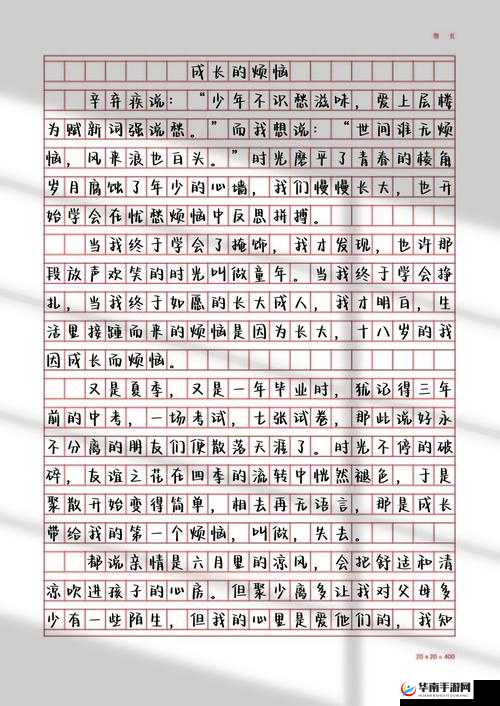 第 页
成长的烦恼
辛弃疾说：“少年不识愁滋味，爱上层楼
为赋新词强说愁。”而我想说：“世间谁无烦
恼，风来浪也白头。”时光磨平了青春的棱角
岁月腐蚀了年少的心墙，我们慢慢长大，也开
始学会在忧愁烦恼中反思拼搏。
当我终于学会了掩饰，我才发现，也许那
段放声欢笑的时光叫做童年。当我终于学会挣
扎，当我终于如愿的长大成人，我才明白，生
活里接踵而来的烦恼是因为长大，十八岁的我
因成长而烦恼。
又是夏季，又是一年毕业时，犹记得三年
前的中考，一场考试，七张试卷，那些说好永
不分离的朋友们便散落天涯了。时光不停的破
碎，友谊之花在四季的流转中恍然褪色，于是
聚散开始变得简单，相去再无语言，那是成长
带给我的第一个烦恼，叫做，失去。
都说亲情是六月里的凉风，会把舒适和清
凉吹进孩子的心房。但聚少离多让我对父母多
少有一些陌生，但我的心里是爱他们的，我知
20×20=400
华南手游网